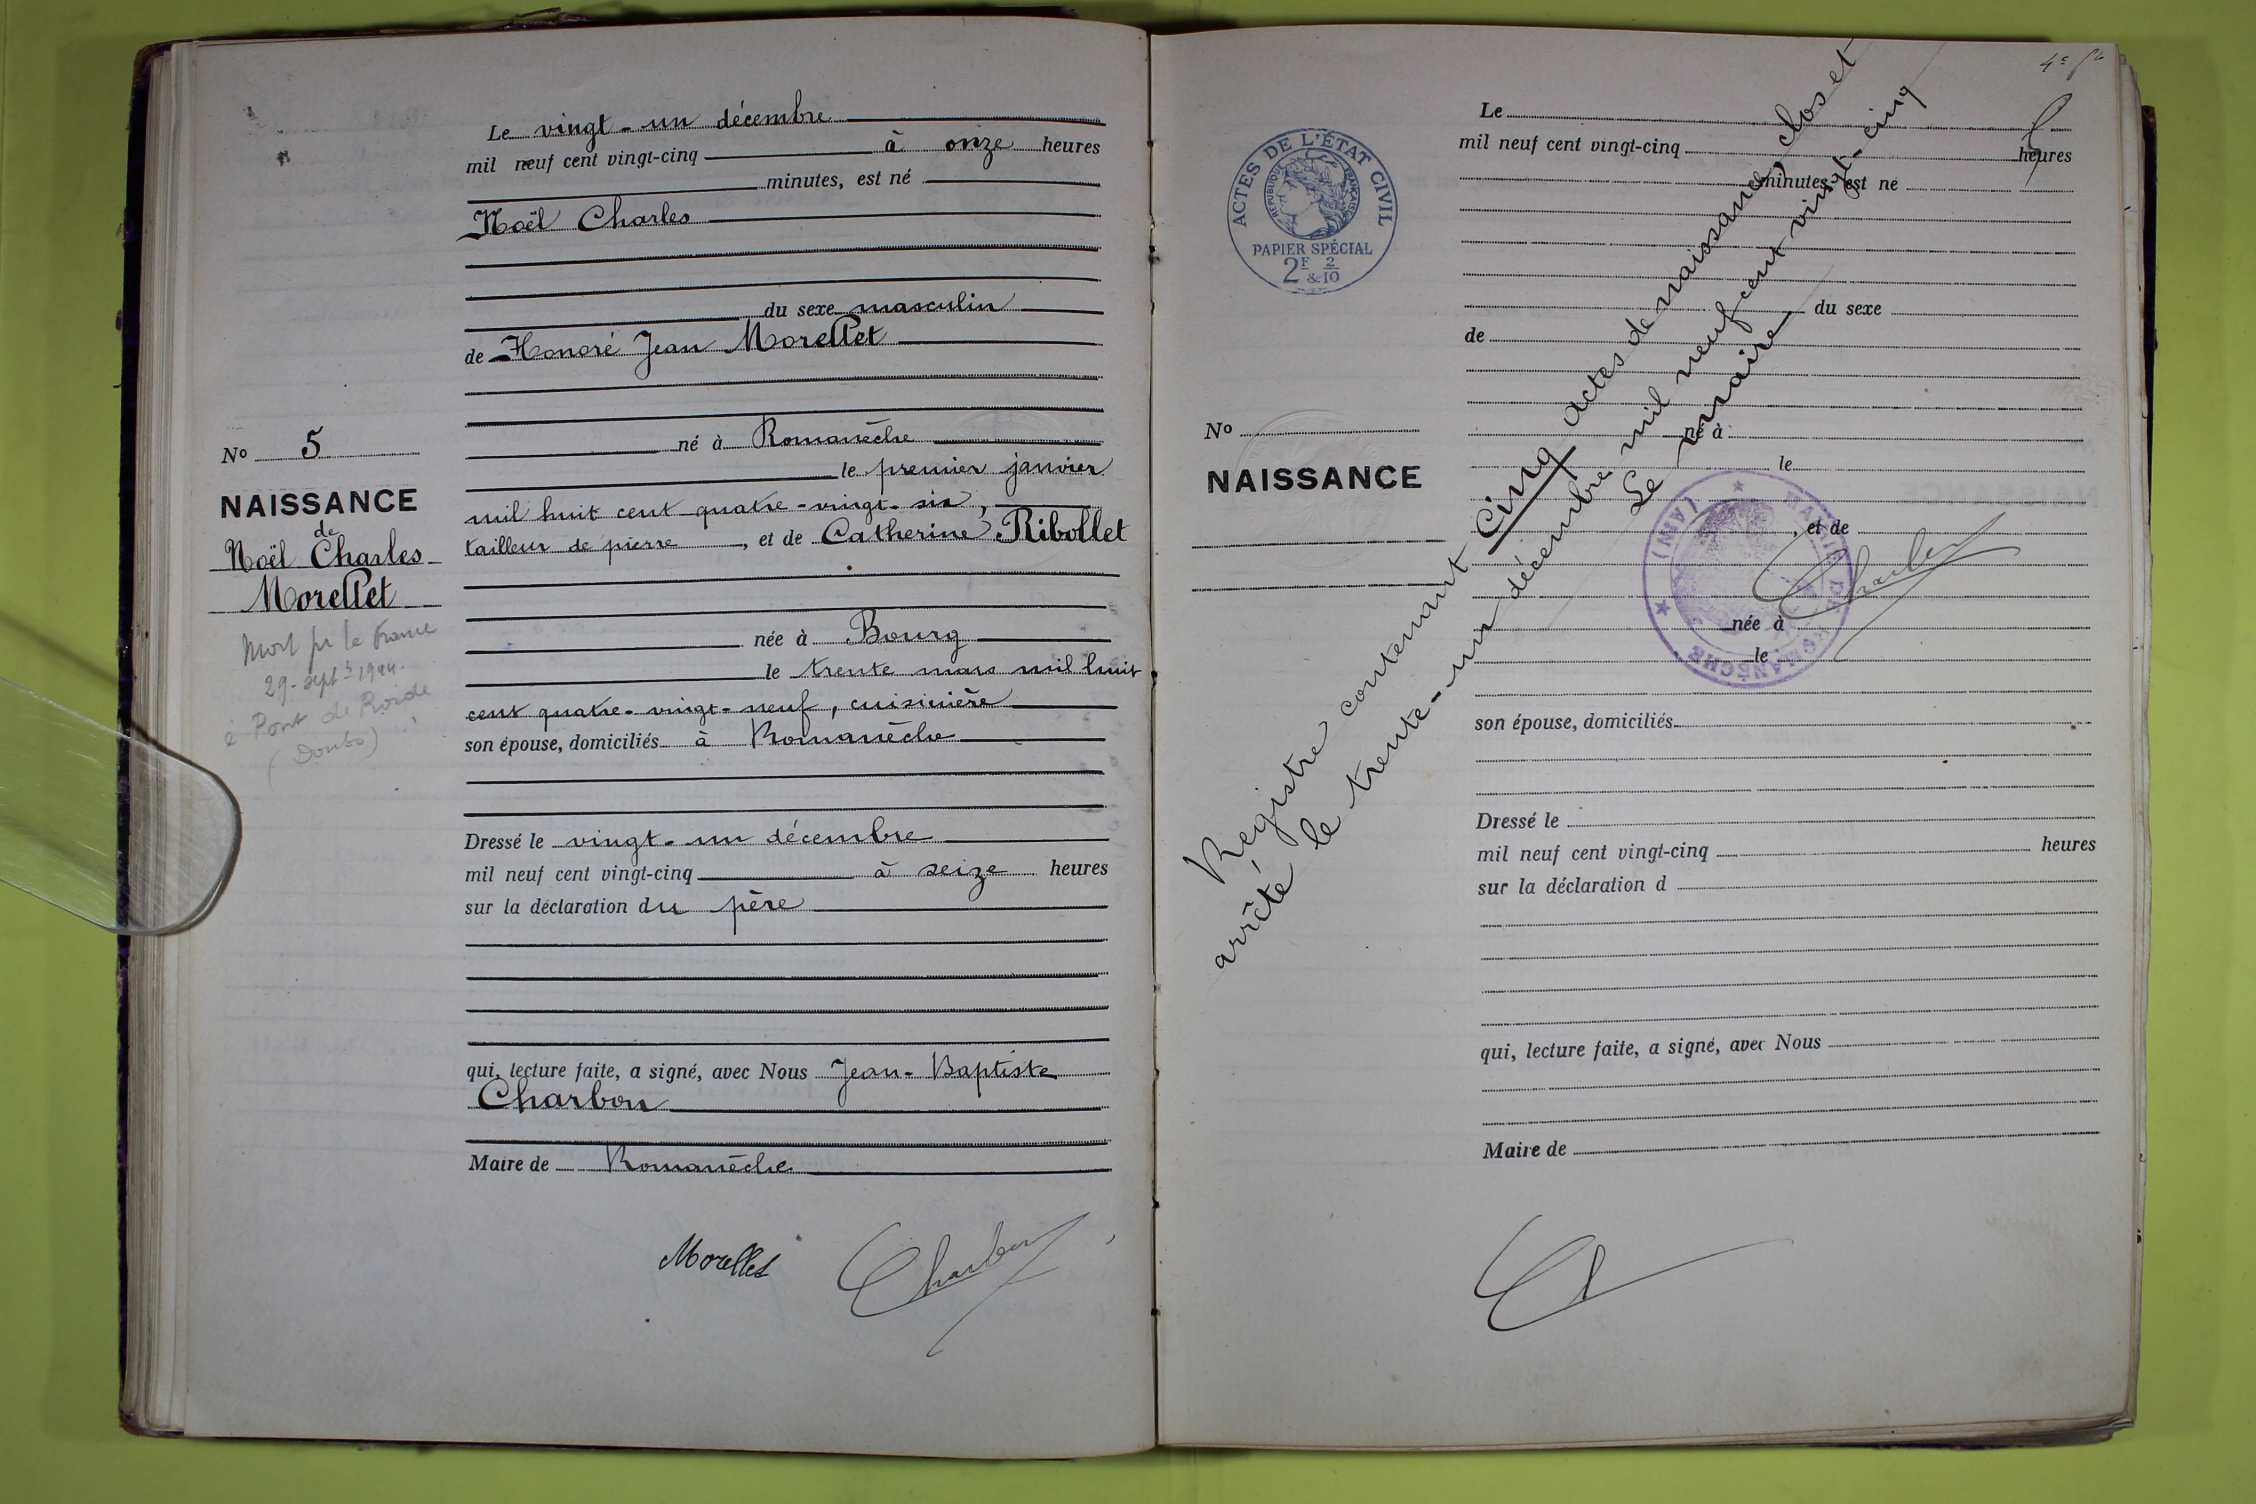 Le vingt-un décembre
mil neuf cent vingt-cinq à onze heures
minutes, est né
Noël Charles
du sexe masculin
de Honoré Jean Morellet
né à Romanèche
le premier janvier
mil huit cent quatre-vingt-six,
tailleur de pierre, et de Catherine Ribollet
née à Bourg
le trente mars mil huit
cent quatre-vingt-neuf, cuisinière
son épouse, domiciliés à Romanèche
Dressé le vingt-un décembre
mil neuf cent vingt-cinq à seize heures
sur la déclaration du père
qui, lecture faite, a signé, avec Nous Jean-Baptiste
Charbon
Maire de Romanèche
Morellet Charbon
No 5
NAISSANCE
de
Noël Charles
Morellet
Mort pr la France
29-sept 1944
à Pont de Roide
(Doubs)
4e
5
ACTES DE L'ÉTAT CIVIL
RÉPUBLIQUE FRANÇAISE
PAPIER SPÉCIAL
2F & 2/10
Le
mil neuf cent vingt-cinq heures
minutes, est né
du sexe
de
né à
le
, et de
née à
le
son épouse, domiciliés
Dressé le
mil neuf cent vingt-cinq heures
sur la déclaration d
qui, lecture faite, a signé, avec Nous
Maire de
No
NAISSANCE
Registre contenant cinq actes de naissance, clos et
arrêté le trente-un décembre mil neuf cent vingt-cinq
Le maire
Charbon
MAIRIE DE ROMANÈCHE (AIN)